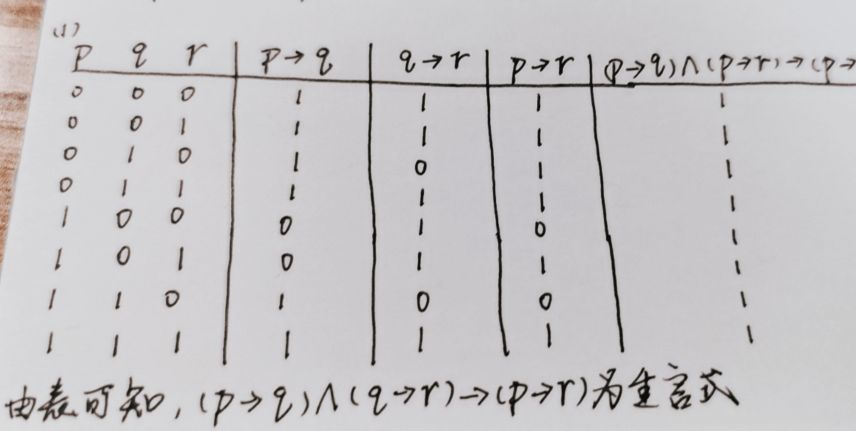 (1)
p q r p→q q→r p→r (p→q)∧(p→r)→(p→
0 0 0 1 1 1 1
0 0 1 1 1 1 1
0 1 0 1 0 1 1
0 1 1 1 1 1 1
1 0 0 0 1 0 1
1 0 1 0 1 1 1
1 1 0 1 0 0 1
1 1 1 1 1 1 1
由表可知,(p→q)∧(q→r)→(p→r)为重言式